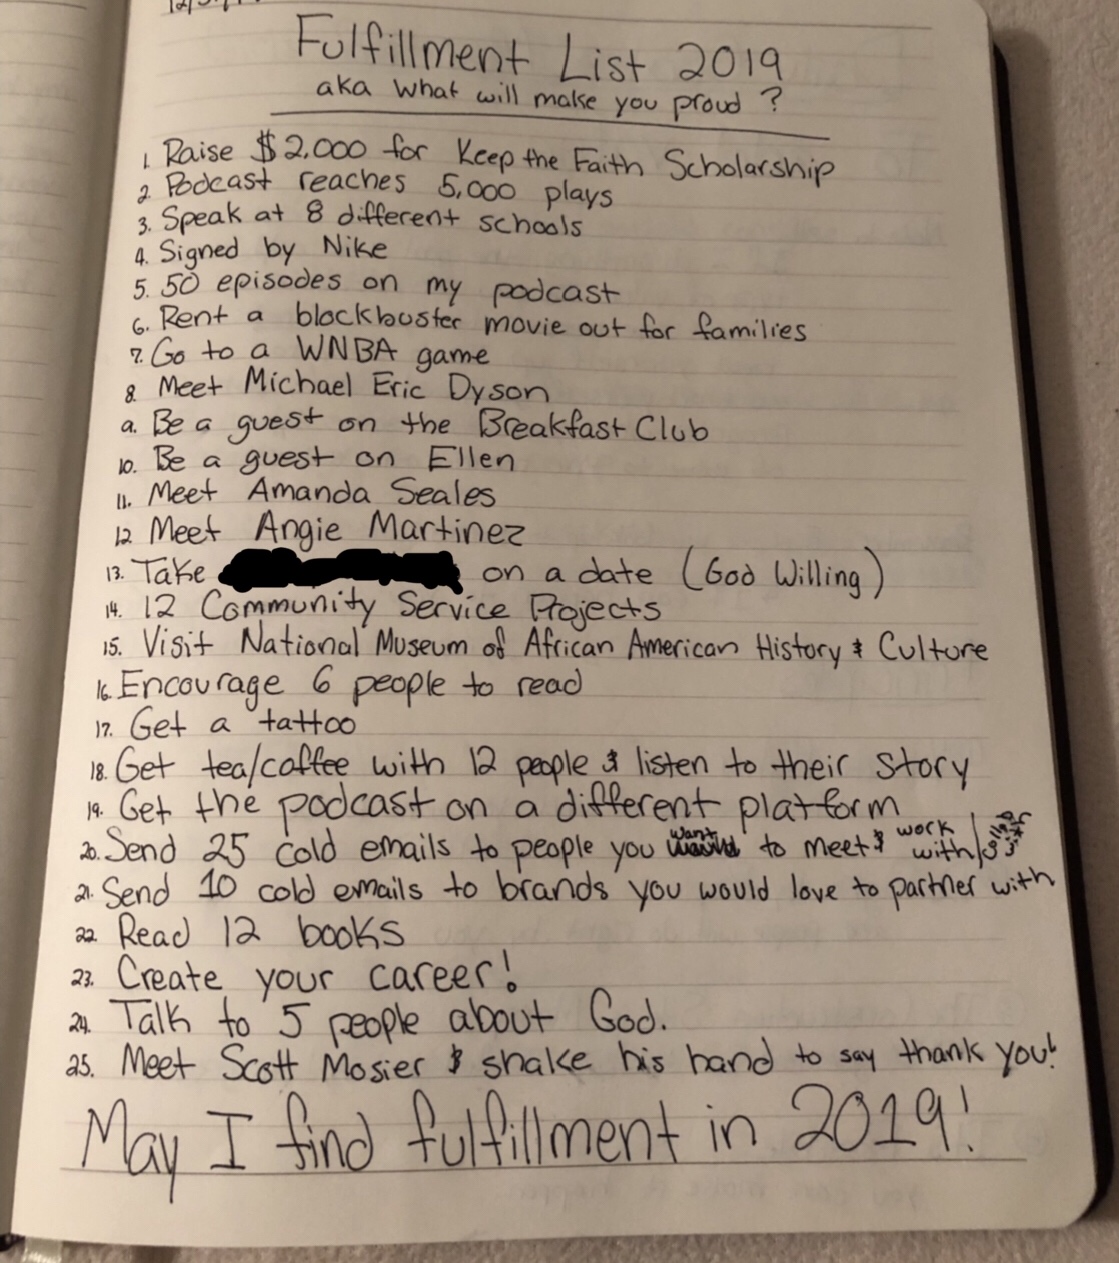 Fulfillment List 2019
aka what will make you proud ?
1. Raise $2,000 for Keep the Faith Scholarship
2. Podcast reaches 5,000 plays
3. Speak at 8 different schools
4. Signed by Nike
5. 50 episodes on my podcast
6. Rent a blockbuster movie out for families
7. Go to a WNBA game
8. Meet Michael Eric Dyson
9. Be a guest on the Breakfast Club
10. Be a guest on Ellen
11. Meet Amanda Seales
12. Meet Angie Martinez
13. Take on a date (God Willing)
14. 12 Community Service Projects
15. Visit National Museum of African American History & Culture
16. Encourage 6 people to read
17. Get a tattoo
18. Get tea/coffee with 12 people & listen to their story
19. Get the podcast on a different platform
20. Send 25 cold emails to people you want to meet & work with/
21. Send 10 cold emails to brands you would love to partner with
22. Read 12 books
23. Create your career!
24. Talk to 5 people about God.
25. Meet Scott Mosier & shake his hand to say thank you!
May I find fulfillment in 2019!